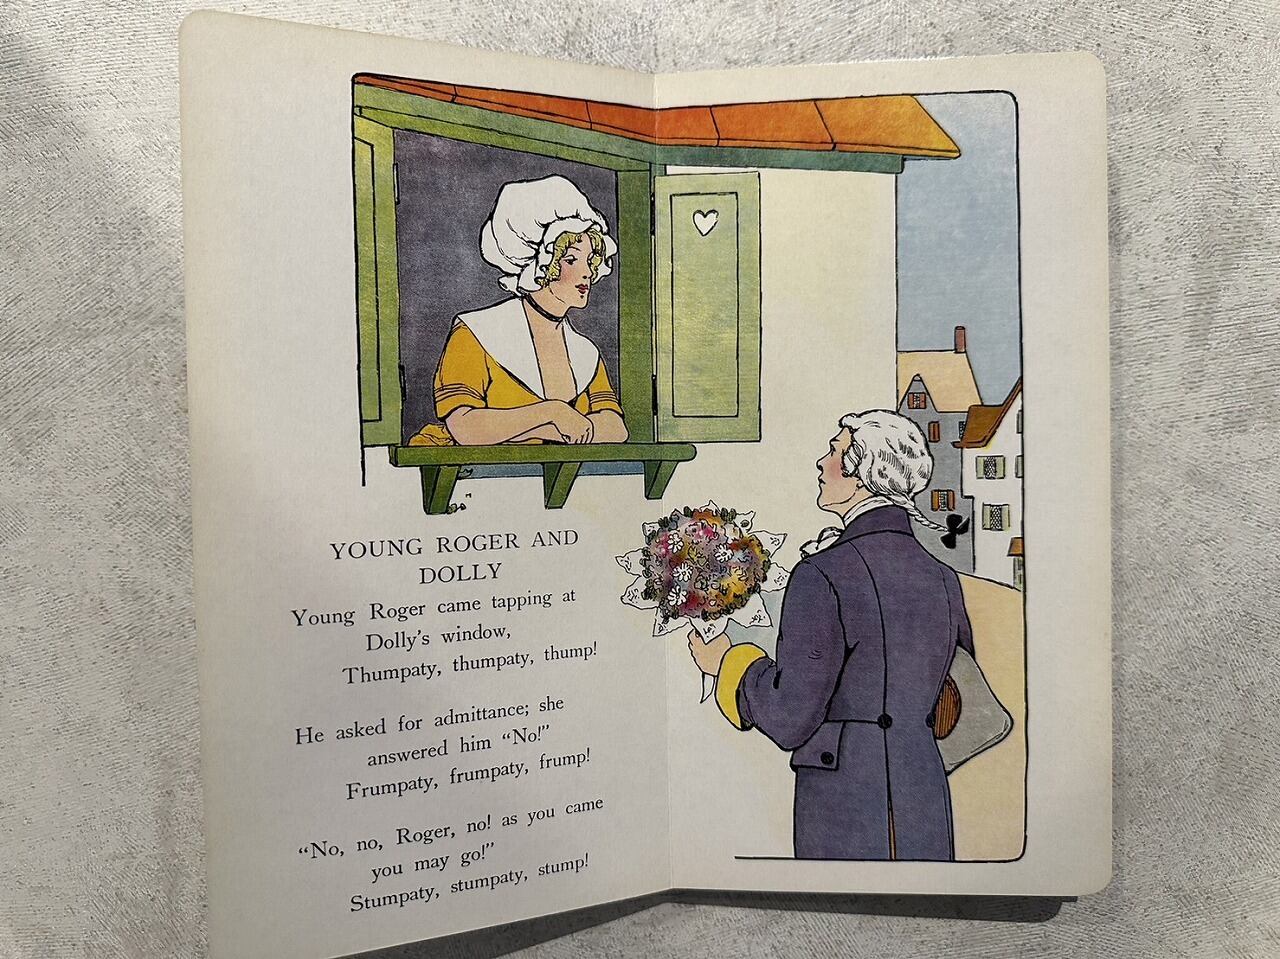 YOUNG ROGER AND
DOLLY
Young Roger came tapping at
Dolly's window,
Thumpaty, thumpaty, thump!
He asked for admittance; she
answered him “No!”
Frumpaty, frumpaty, frump!
“No, no, Roger, no! as you came
you may go!”
Stumpaty, stumpaty, stump!